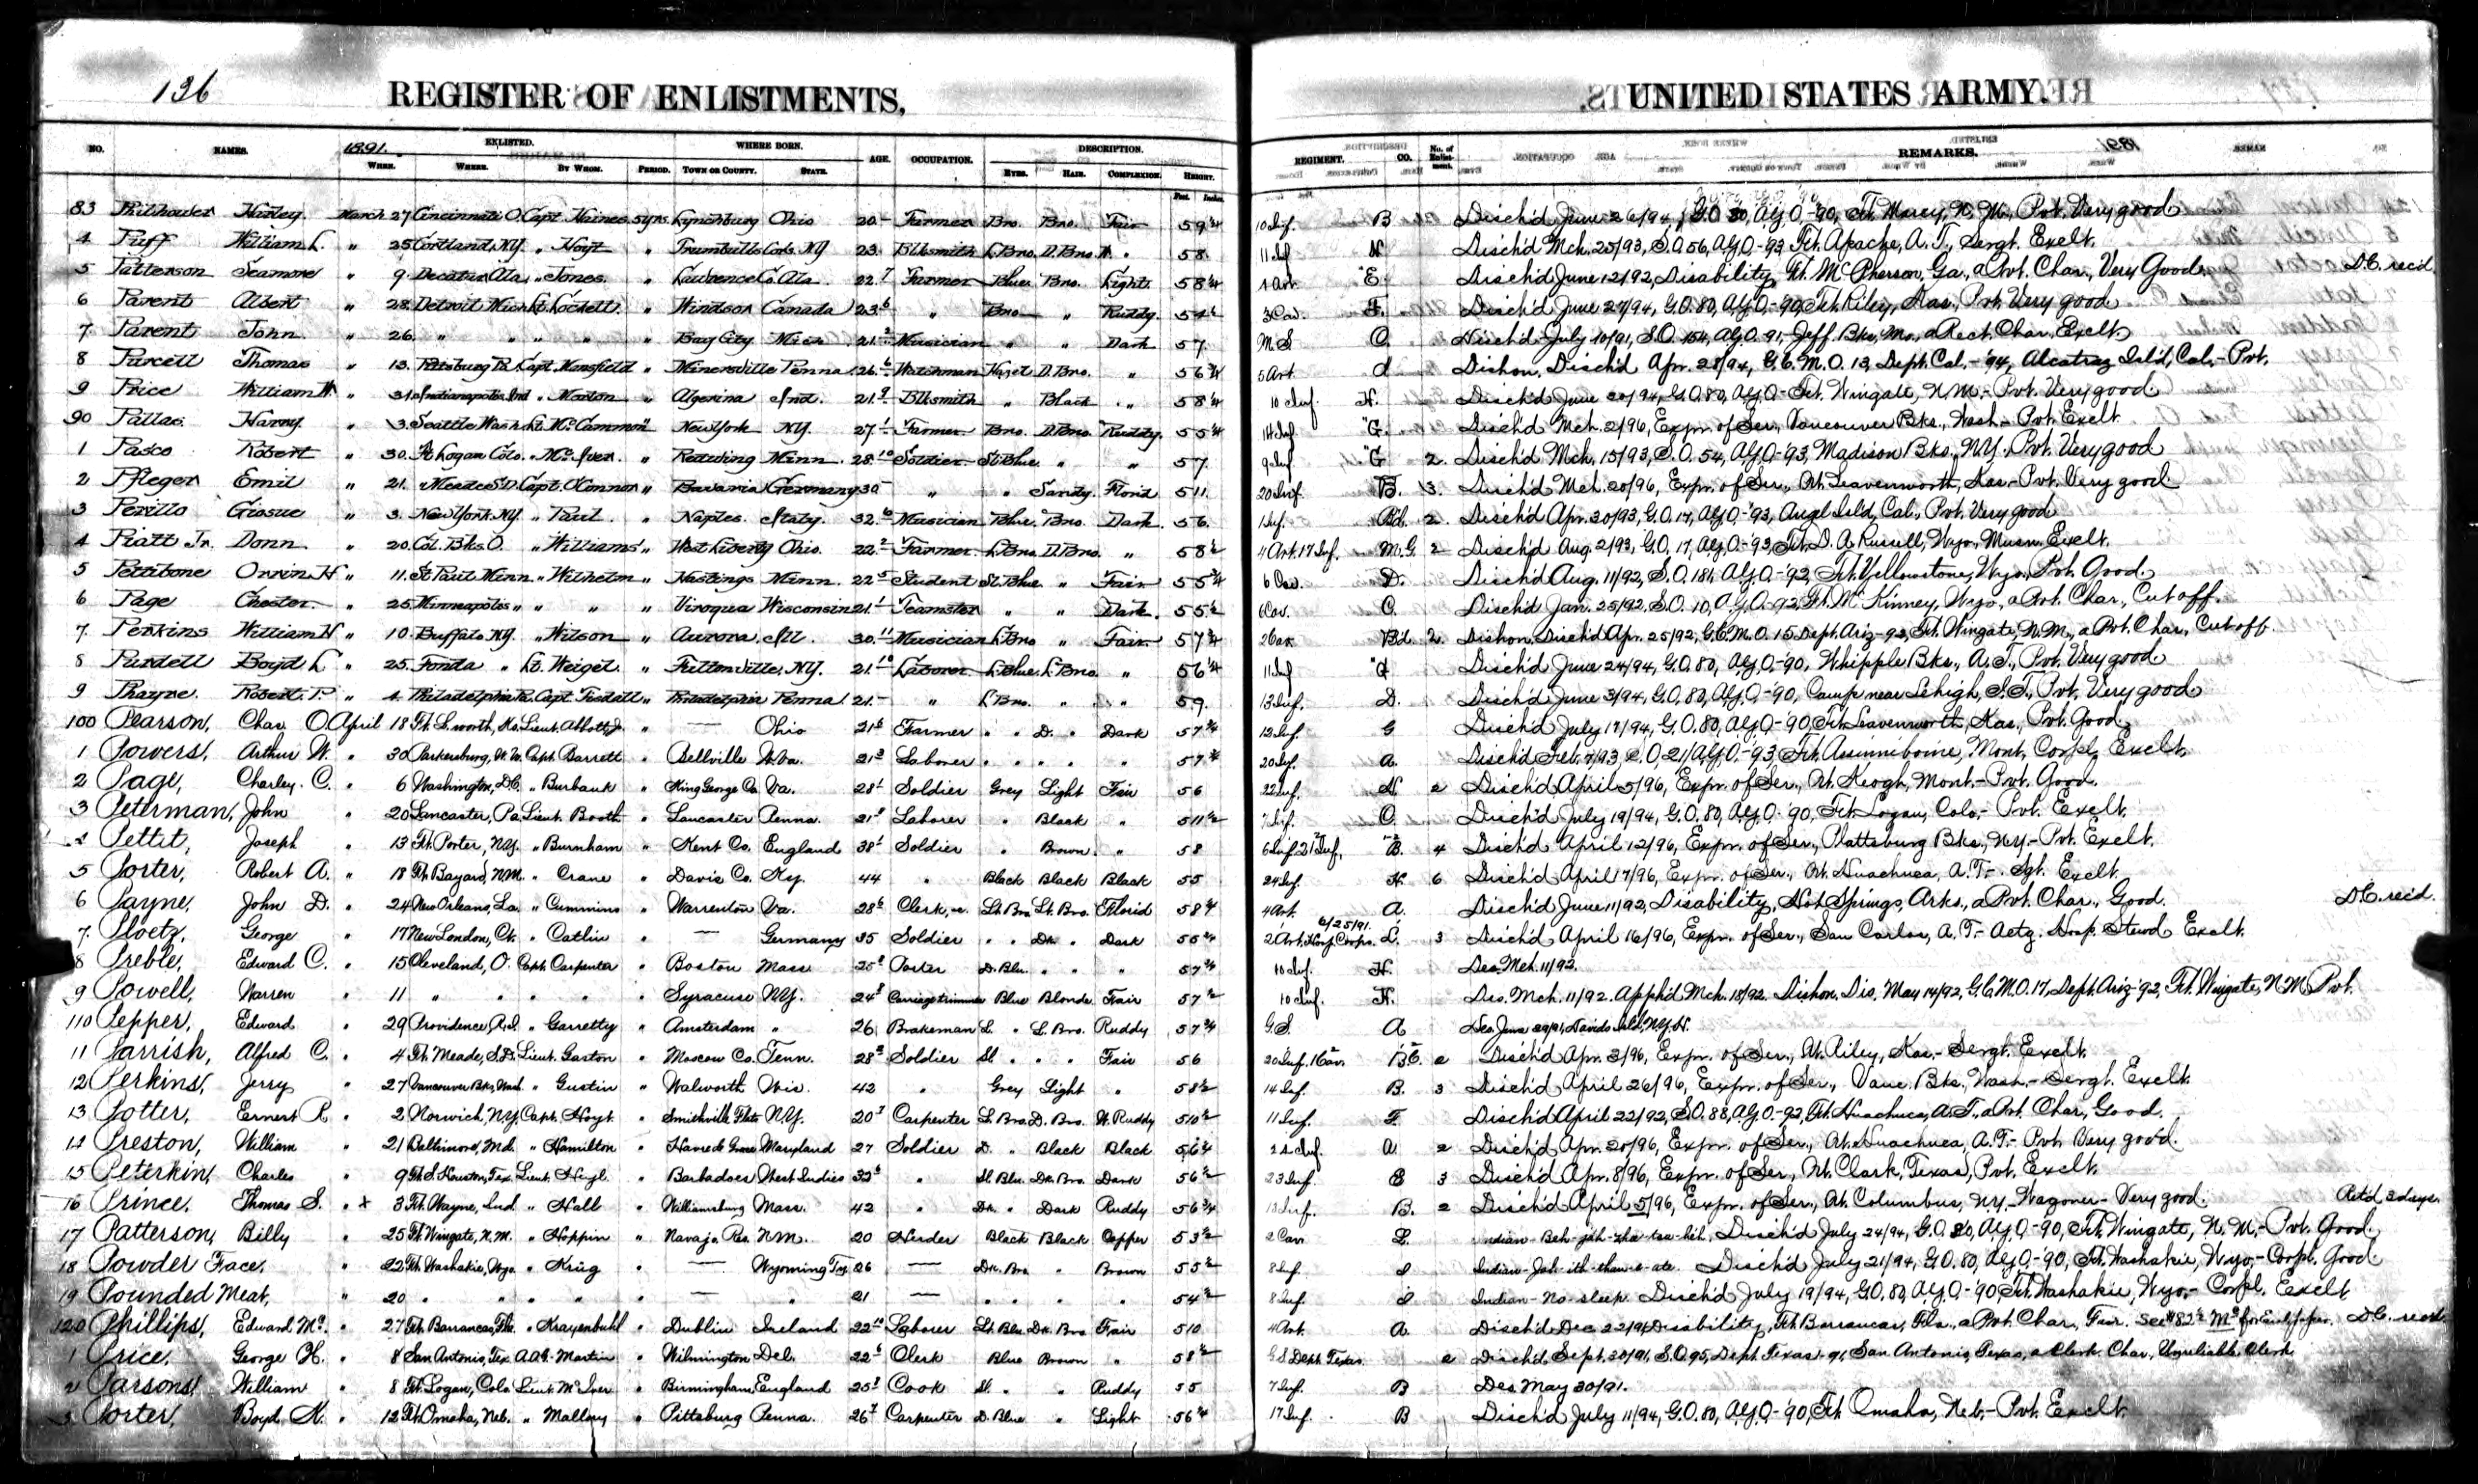 136
REGISTER OF ENLISTMENTS,
UNITED STATES ARMY.
NO. NAMES. 1891. ENLISTED. WHEN. WHERE. BY WHOM. PERIOD. WHERE BORN. TOWN OR COUNTY. STATE. AGE. OCCUPATION. DESCRIPTION. EYES. HAIR. COMPLEXION. HEIGHT. Feet. Inches. REGIMENT. CO. No. of Enlistment. REMARKS.
83 Harley March 27 Cincinnati O. Capt. Haines 5 yrs. Lynchburg Ohio 20 Farmer Bro. Bro. Fair 5 9 1/4 10 Inf. B Disch'd June 26/94, G.O. 80, A.G.O.-'90, Ft. Marcy, N.M., Pvt. Very good
4 Puff William L. " 25 Cortland, N.Y. " Hoyt " N.Y. 23 Blksmith L. Bro. D. Bro. " 5 8 11 Inf H Disch'd Mch. 25/93, S.O. 56, A.G.O.-93 Ft. Apache, A.T., Sergt. Exclt.
5 Patterson Seamore " 9 Decatur Ala " Jones " Lawrence Co. Ala. 22 Farmer Blue Bro. Light 5 8 1/4 4 Art. "E Disch'd June 12/92, Disability, Ft. McPherson, Ga., a Pvt. Char., Very Good. D.C. rec'd
6 Parent Albert " 28 Detroit Mich Lt. Lockett " Windsor Canada 23 6 " Bro " Ruddy 5 4 3 Cav. F. Disch'd June 27/94, G.O. 80, A.G.O.-90, Ft. Riley, Kas., Pvt. Very good
7 Parent John " 26 " " " " " Bay City Mich 21 Musician " " Dark 5 7 M.S. C. Disch'd July 10/91, S.O. 154, A.G.O. 91, Jeff. Bks, Mo., a Rect. Char. Exclt.
8 Purcell Thomas " 13 Pittsburg Pa. Capt. Mansfield " Minersville Penna 26 Watchman Hazel D. Bro. " 5 6 3/4 5 Art. Dishon. Disch'd Apr. 28/94, G.C.M.O. 13, Dept. Cal.-'94, Alcatraz Isl'd, Cal.- Pvt.
9 Price William H. " 31 Indianapolis Ind " Morton " Algerina Ind. 21 9 Blksmith " Black " 5 8 1/4 10 Inf. H. Disch'd June 30/94, G.O. 80, A.G.O.- Ft. Wingate, N.M.- Pvt. Very good
90 Pallas Harry " 3 Seattle Wash Lt. McCammon " New York N.Y. 27 1 Farmer Bro. D. Bro. Ruddy. 5 5 1/4 14 Inf "G. Disch'd Mch. 2/96, Expn. of Ser., Vancouver Bks., Wash.- Pvt. Exclt.
1 Pasco Robert " 30 Ft. Logan Colo. " McIver " Redwing Minn. 28 10 Soldier Sl. Blue " " 5 7 9 Inf "G 2. Disch'd Mch. 15/93, S.O. 54, A.G.O.-93, Madison Bks., N.Y. Pvt. Very good
2 Pfleger Emil " 21 " Meade S.D. Capt. O'Connor " Bavaria Germany 30 " " Sandy. Florid 5 11 20 Inf. B. 3. Disch'd Mch. 20/96, Expn. of Ser., Ft. Leavenworth, Kas.- Pvt. Very good
3 Perillo Giosue " 3 New York N.Y. " Paul " Naples. Italy. 32 6 Musician Blue Bro. Dark 5 6 1 Inf. Bd. 2. Disch'd Apr. 30/93, G.O. 17, A.G.O.-'93, Angel Isl'd, Cal., Pvt. Very good
4 Piatt Jr. Donn " 20 Col. Bks O. " Williams " West Liberty Ohio. 22 2 Farmer L. Bro. D. Bro. " 5 8 1/2 4 Art. 17 Inf. M.G. 2 Disch'd Aug. 2/93, G.O. 17, A.G.O.-93, Ft. D.A. Russell, Wyo., Musn. Exclt.
5 Pettibone Orrin H " 11 St Paul Minn " Wilhelm " Hastings Minn. 22 5 Student Sl. Blue " Fair 5 5 3/4 6 Cav. D. Disch'd Aug. 11/92, S.O. 181, A.G.O.-'92, Ft. Yellowstone, Wyo., Pvt. Good.
6 Page Chester " 25 Minneapolis " " " " Viroqua Wisconsin 21 1 Teamster " " Dark. 5 5 1/2 6 Cav. C. Disch'd Jan. 25/92. S.O. 10, A.G.O.-92, Ft. McKinney, Wyo., a Pvt. Char., Cut off.
7 Perkins William H " 10 Buffalo N.Y. " Wilson " Aurora. Ill. 30 11 Musician L. Bro " Fair 5 7 1/4 2 Cav Bd. 2. Dishon. Disch'd Apr. 25/92, G.C.M.O. 15 Dept. Ariz-92, Ft. Wingate, N.M., a Pvt. Char., Cut off.
8 Purdell Boyd L " 25 Fonda " Lt. Weigel " Fultonville, N.Y. 21 10 Laborer L. Blue L. Bro. " 5 6 1/4 11 Inf Disch'd June 24/94, G.O. 80, A.G.O.-'90, Whipple Bks., A.T., Pvt. Very good
9 Phayne. Robert P. " 4 Philadelphia Pa. Capt. Tisdall " Philadelphia Penna 21 " L Bro. " " 5 9 13 Inf. D. Disch'd June 3/94, G.O. 80, A.G.O.-90, Camp near Lehigh, I.T., Pvt. Very good
100 Pearson, Char O. April 18 Ft. L.worth, Ks. Lieut. Abbott, Jr. " — Ohio 21 6 Farmer " " D. " Dark 5 7 3/4 12 Inf. G Disch'd July 17/94, G.O. 80, A.G.O.-'90, Ft. Leavenworth, Kas., Pvt. Good
1 Powers, Arthur W. " 30 Parkersburg, W. Va. Capt. Barrett " Bellville W.Va. 21 3 Laborer " " " " " 5 7 3/4 20 Inf. A. Disch'd Feb. 7/93, S.O. 21 A.G.O.-'93, Ft. Assinniboine, Mont., Corpl. Exclt.
2 Page, Charley C. " 6 Washington, D.C. " Burbank " King George Co. Va. 28 1 Soldier Grey Light Fair 5 6 22 Inf. H 2 Disch'd April 5/96, Expn. of Ser., Ft. Keogh, Mont.- Pvt. Good.
3 Peterman, John " 20 Lancaster, Pa. Lieut. Booth " Lancaster Penna. 21 8 Laborer " Black " 5 11 1/2 7 Inf. C. Disch'd July 19/94, G.O. 80, A.G.O. '90, Ft. Logan, Colo,- Pvt. Exclt.
4 Pettit, Joseph " 13 Ft. Porter, N.Y. " Burnham " Kent Co. England 38 1 Soldier " Brown " 5 8 6 Inf. 21 Inf. B. 4 Disch'd April 12/96, Expn. of Ser., Plattsburg Bks., N.Y.- Pvt. Exclt.
5 Porter, Robert A. " 18 Ft. Bayard, N.M. " Crane " Davis Co. Ky. 44 " Black Black Black 5 5 24 Inf. H 6 Disch'd April 17/96, Expn. of Ser., Ft. Huachuca, A.T.- Sgt. Exclt.
6 Payne, John D. " 24 New Orleans, La. " Cummins " Warrenton Va. 28 6 Clerk Lt. Bro. Lt. Bro. Florid 5 8 1/4 4 Art. A. Disch'd June 11/92, Disability, Hot Springs, Arks., a Pvt. Char., Good. D.C. rec'd.
7. Ploetz, George " 17 New London, Ct. " Catlin " — Germany 35 Soldier " " Dk. " Dark 5 5 3/4 2 Art. Hosp. Corps. 6/25/91. L. 3 Disch'd April 16/96, Expn. of Ser., San Carlos, A.T.- Actg. Hosp. Stewd Exclt.
8 Preble, Edward C. " 15 Cleveland, O. Capt. Carpenter " Boston Mass 25 Porter D. Blu. " " " 5 7 3/4 10 Inf. H. Des. Mch. 11/92.
9 Powell, Warren " 11 " " " " " Syracuse N.Y. 24 Carriage trimmer Blue Blonde Fair 5 7 1/2 10 Inf. H. Des. Mch. 11/92. App'h'd Mch. 18/92. Dishon. Dis. May 14/92, G.C.M.O. 17, Dept. Ariz '92, Ft. Wingate, N.M. Pvt.
110 Pepper, Edward " 29 Providence, R.I. " Garretty " Amsterdam " 26 Brakeman L. " L. Bro. Ruddy 5 7 3/4 G.S. A Des. June 29/91, Davids Isld, N.Y.H.
11 Parrish, Alfred C. " 4 Ft. Meade, S.D. Lieut. Gaston " Moscow Co. Tenn. 28 Soldier Sl " " " Fair 5 6 20 Inf. 1 Cav. B C. 2 Disch'd Apr. 3/96, Expn. of Ser., Ft. Riley, Kas.- Sergt. Exclt.
12 Perkins, Jerry " 27 Vancouver Bks, Wash. " Gustin " Walworth Wis. 42 " Grey Light " 5 8 1/2 14 Inf. B. 3 Disch'd April 26/96, Expn. of Ser., Vanc. Bks., Wash.- Sergt. Exclt.
13 Potter, Ernest R " 2 Norwich, N.Y. Capt. Hoyt " Smithville Flats N.Y. 20 7 Carpenter L. Bro. D. Bro. W. Ruddy 5 10 1/2 11 Inf. F. Disch'd April 22/92, S.O. 88, A.G.O.-92, Ft. Huachuca, A.T., a Pvt. Char., Good.
14 Preston, William " 21 Baltimore, Md. " Hamilton " Havre de Grace Maryland 27 Soldier D. " Black Black 5 6 1/4 24 Inf. A 2 Disch'd Apr. 20/96, Expn. of Ser., Ft. Huachuca, A.T.- Pvt. Very good.
15 Peterkin, Charles " 9 Ft. S. Houston, Tex. Lieut. Heyl " Barbadoes West Indies 33 " Sl. Blu. Dk. Bro. Dark 5 6 1/2 23 Inf. 3 Disch'd Apr. 8/96, Expn. of Ser., Ft. Clark, Texas, Pvt. Exclt.
16 Prince, Thomas S. " x 3 Ft. Wayne, Ind. " Hall " Williamsburg Mass. 42 " Dk. " Dark Ruddy 5 6 3/4 Inf. B. 2 Disch'd April 5/96, Expn. of Ser., Ft. Columbus, N.Y.- Wagoner- Very good. Ret'd 3 days.
17 Patterson, Billy " 25 Ft. Wingate, N.M. " Hippin " Navajo Res. N.M. 20 Herder Black Black Copper 5 3 1/2 2 Cav. L. Indian- Disch'd July 24/94, G.O. 80, A.G.O.-90, Ft. Wingate, N.M.,- Pvt. Good
18 Powder Face, " 22 Ft. Washakie, Wyo. " Krug " — Wyoming Ty. 26 — Dk. Bro " Brown 5 5 1/2 8 Inf. Indian- Disch'd July 21/94, G.O. 80, A.G.O.-'90, Ft. Washakie, Wyo,- Corpl. Good
19 Pounded Meat, " 20 " " " " " — " 21 — " " " " 5 4 1/2 8 Inf. Indian- No-sleep. Disch'd July 19/94, G.O. 80, A.G.O.-90, Ft. Washakie, Wyo.- Corpl. Exclt
120 Phillips, Edward Mc. " 27 Ft. Barrancas, Fla. " Krayenbuhl " Dublin Ireland 22 10 Laborer Lt. Blu. Dk. Bro Fair 5 10 4 Art. A. Disch'd Dec 22/91, Disability, Ft. Barrancas, Fla., a Pvt. Char., Fair. D.C. rec'd.
1 Price, George H. " 8 San Antonio, Tex A.A.G. Martin " Wilmington Del. 22 6 Clerk Blue Brown " 5 8 1/2 G.S. Dept. Texas. 2 Disch'd Sept. 30/91, S.O. 95, Dept. Texas-91, San Antonio, Texas, a Clerk. Char., Unreliable Clerk
2 Parsons, William " 8 Ft. Logan, Colo. Lieut. McIver " Birmingham, England 25 Cook Sl. " " Ruddy 5 5 7 Inf. B Des. May 30/91.
3 Porter, Boyd K. " 12 Ft. Omaha, Neb. " Mallory " Pittsburg Penna. 26 7 Carpenter D. Blue " Light 5 6 1/4 17 Inf. B Disch'd July 11/94, G.O. 80, A.G.O.-'90, Ft. Omaha, Neb.- Pvt. Exclt.